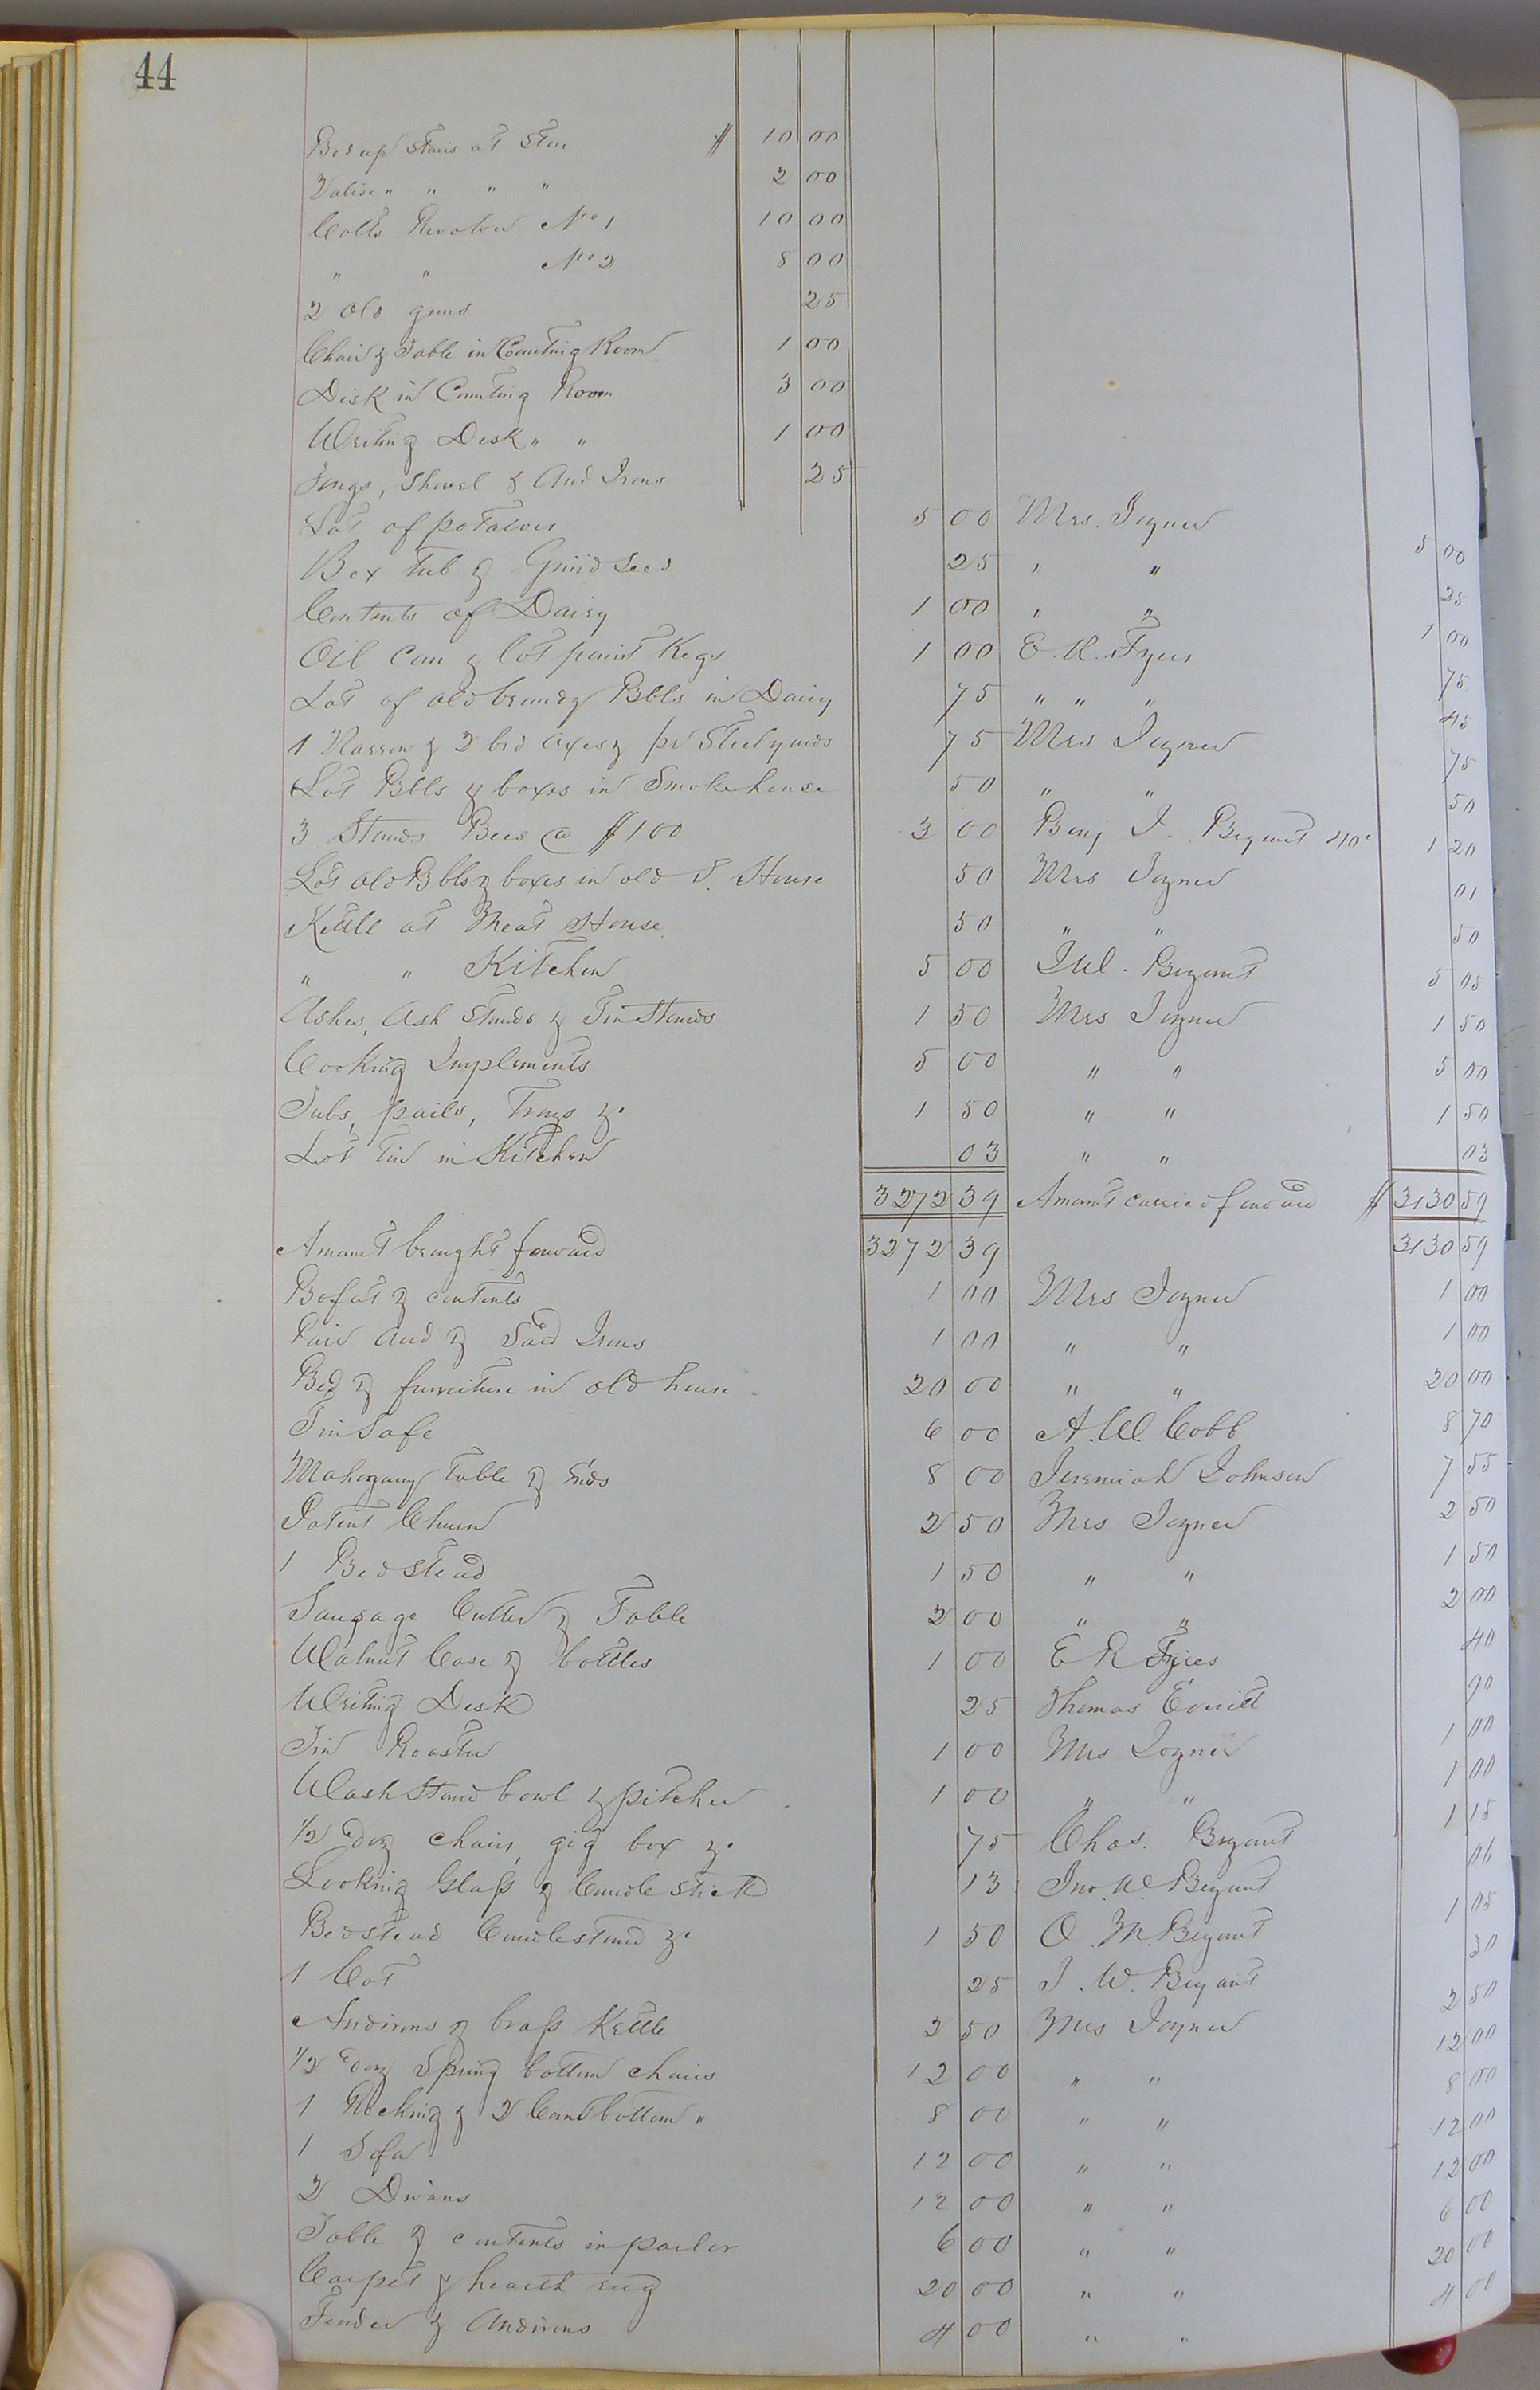 44
Bed up Stairs at Store $ 10 00
Valise " " " " 2 00
Colts Revolver No 1 10 00
" " No 2 8 00
2 Old guns 25
Chair & Table in Counting Room 1 00
Desk in Counting Room 3 00
Writing Desk " " 1 00
Tongs, Shovel & And Irons 25
Lot of potatoes 5 00 Mrs. Joyner 5 00
Box Tub & 25 , " 25
Contents of Dairy 1 00 , " 1 00
Oil Can & lot paint Kegs 1 00 E. R. Tyers 75
Lot of old brandy Bbls in Dairy 75 " " " 45
1 Harrow & 2 bro axes & pr Steelyards 75 Mrs Joyner 75
Lot Bbls & boxes in Smokehouse 50 " " 50
3 Stands Bees @ $1 00 3 00 Benj J. Bryant 40c 1 20
Lot old Bbls & boxes in old S. House 50 Mrs Joyner 01
Kettle at Meat House 50 " " 50
" " Kitchen 5 00 Bryant 5 05
Ashes, Ash Stands & Tin Stands 1 50 Mrs Joyner 1 50
Cooking Implements 5 00 " " 5 00
Tubs, pails, Trays &c 1 50 " " 1 50
Lot Tin in Kitchen 03 " " 03
3272 39 Amount carried forward $ 3130 59
Amount brought forward 3272 39 3130 59
Bofat & contents 1 00 Mrs Joyner 1 00
Pair And & Sad Irons 1 00 " " 1 00
Bed & furniture in old house 20 00 " " 20 00
Tin Safe 6 00 A. W. Cobb 8 70
Mahogany Table & Ends 8 00 Jeremiah Johnson 7 55
Patent Churn 2 50 Mrs Joyner 2 50
1 Bedstead 1 50 " " 1 50
Sausage Cutter & Table 2 00 " " 2 00
Walnut Case & bottles 1 00 E R Tyers 40
Writing Desk 25 Thomas Everitt 90
Tin Roaster 1 00 Mrs Joyner 1 00
Wash Stand bowl & pitcher 1 00 " " 1 00
1/2 Doz chairs, gig box &c 75 Chas. Bryant 1 15
Looking Glass & Candle stick 13 Jno. W. Bryant 06
Bedstead Candlestand &c 1 50 O. M. Bryant 1 05
1 Cot 25 J. W. Bryant 30
Andirons & brass Kettle 2 50 Mrs Joyner 2 50
1/2 Doz Spring bottom chairs 12 00 " " 12 00
1 Rocking & 2 Cane bottom " 8 00 " " 8 00
1 Sofa 12 00 " " 12 00
2 Divans 12 00 " " 12 00
Table & contents in parlor 6 00 " " 6 00
Carpet & hearth rug 20 00 " " 20 00
Fender & Andirons 4 00 " " 4 00